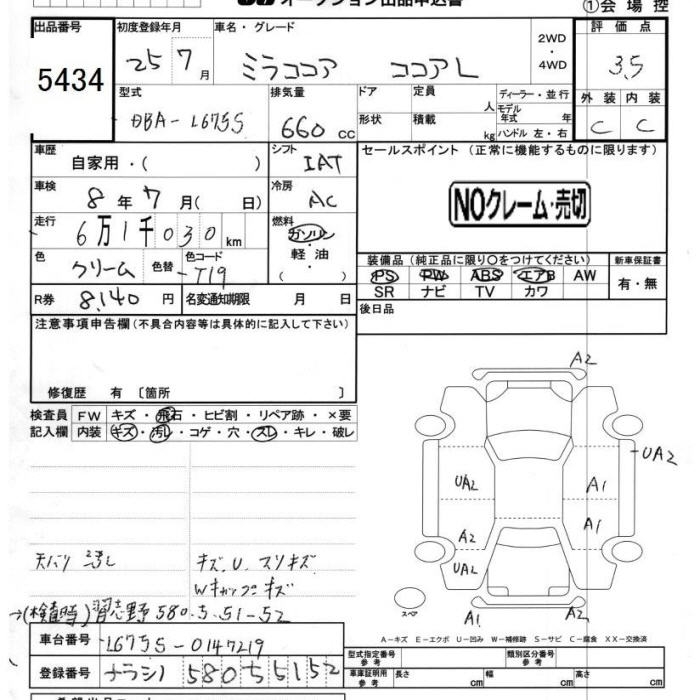 オークション出品申込書
①会場控
出品番号 初度登録年月 車名・グレード 2WD・4WD 評価点
5434 25 7月 ミラココア ココアL 3.5
型式 排気量 ドア 定員 人 ディーラー・並行 外装 内装
DBA-L675S 660cc 形状 積載 kg モデル年式 年 ハンドル 左・右 C C
車歴 自家用・( ) シフト IAT セールスポイント(正常に機能するものに限ります)
車検 8年7月( 日) 冷房 AC NOクレーム・売切
走行 6万1千030km 燃料 ガソリン・軽油
装備品(純正品に限り○をつけてください) 新車保証書
色 クリーム 色替 色コード T19 PS PW ABS エアB AW 有・無
SR ナビ TV カワ
R券 8,140円 名変通知期限 月 日 後日品
注意事項申告欄(不具合内容等は具体的に記入して下さい)
修復歴 有 〔箇所 〕
検査員 FW キズ・飛石・ヒビ割・リペア跡・×要
記入欄 内装 キズ・汚レ・コゲ・穴・スレ・キレ・破レ
A2
UA2
UA2 A1
A2 A1
UA2
スペア A1 A2
キズ、U、スリキズ
Wキャップキズ
(検査時)習志野580.5.51-52
A-キズ E-エクボ U-凹み W-補修跡 S-サビ C-腐食 XX-交換済
車台番号 L675S-0147219
型式指定番号 参考 類別区分番号 参考
登録番号 ナラシノ 580 5 5152
車庫証明用 参考 長さ cm 幅 cm 高さ cm